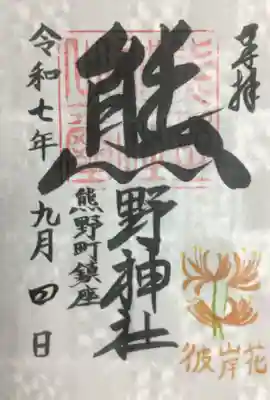 奉拝
熊野神社
熊野町鎮座
令和七年九月四日
彼岸花